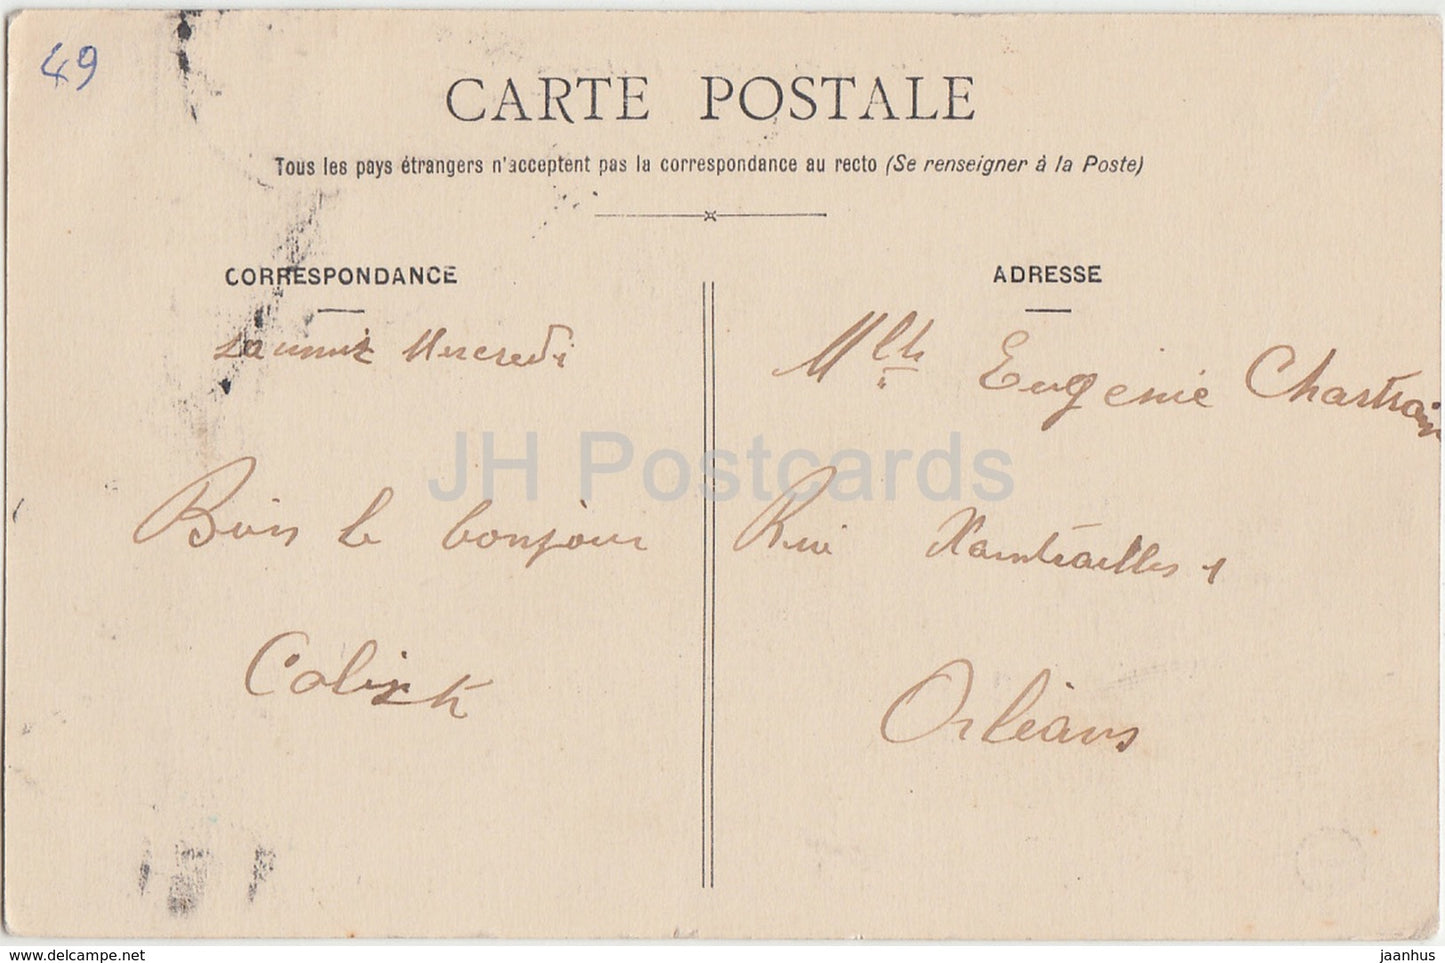 49
CARTE POSTALE
Tous les pays étrangers n'acceptent pas la correspondance au recto (Se renseigner à la Poste)
CORRESPONDANCE
Mercredi
le bonjour
ADRESSE
Mlle Eugénie Chartrain
Rue Xaintrailles 1
Orléans
JH Postcards
www.delcampe.net
jaanhus